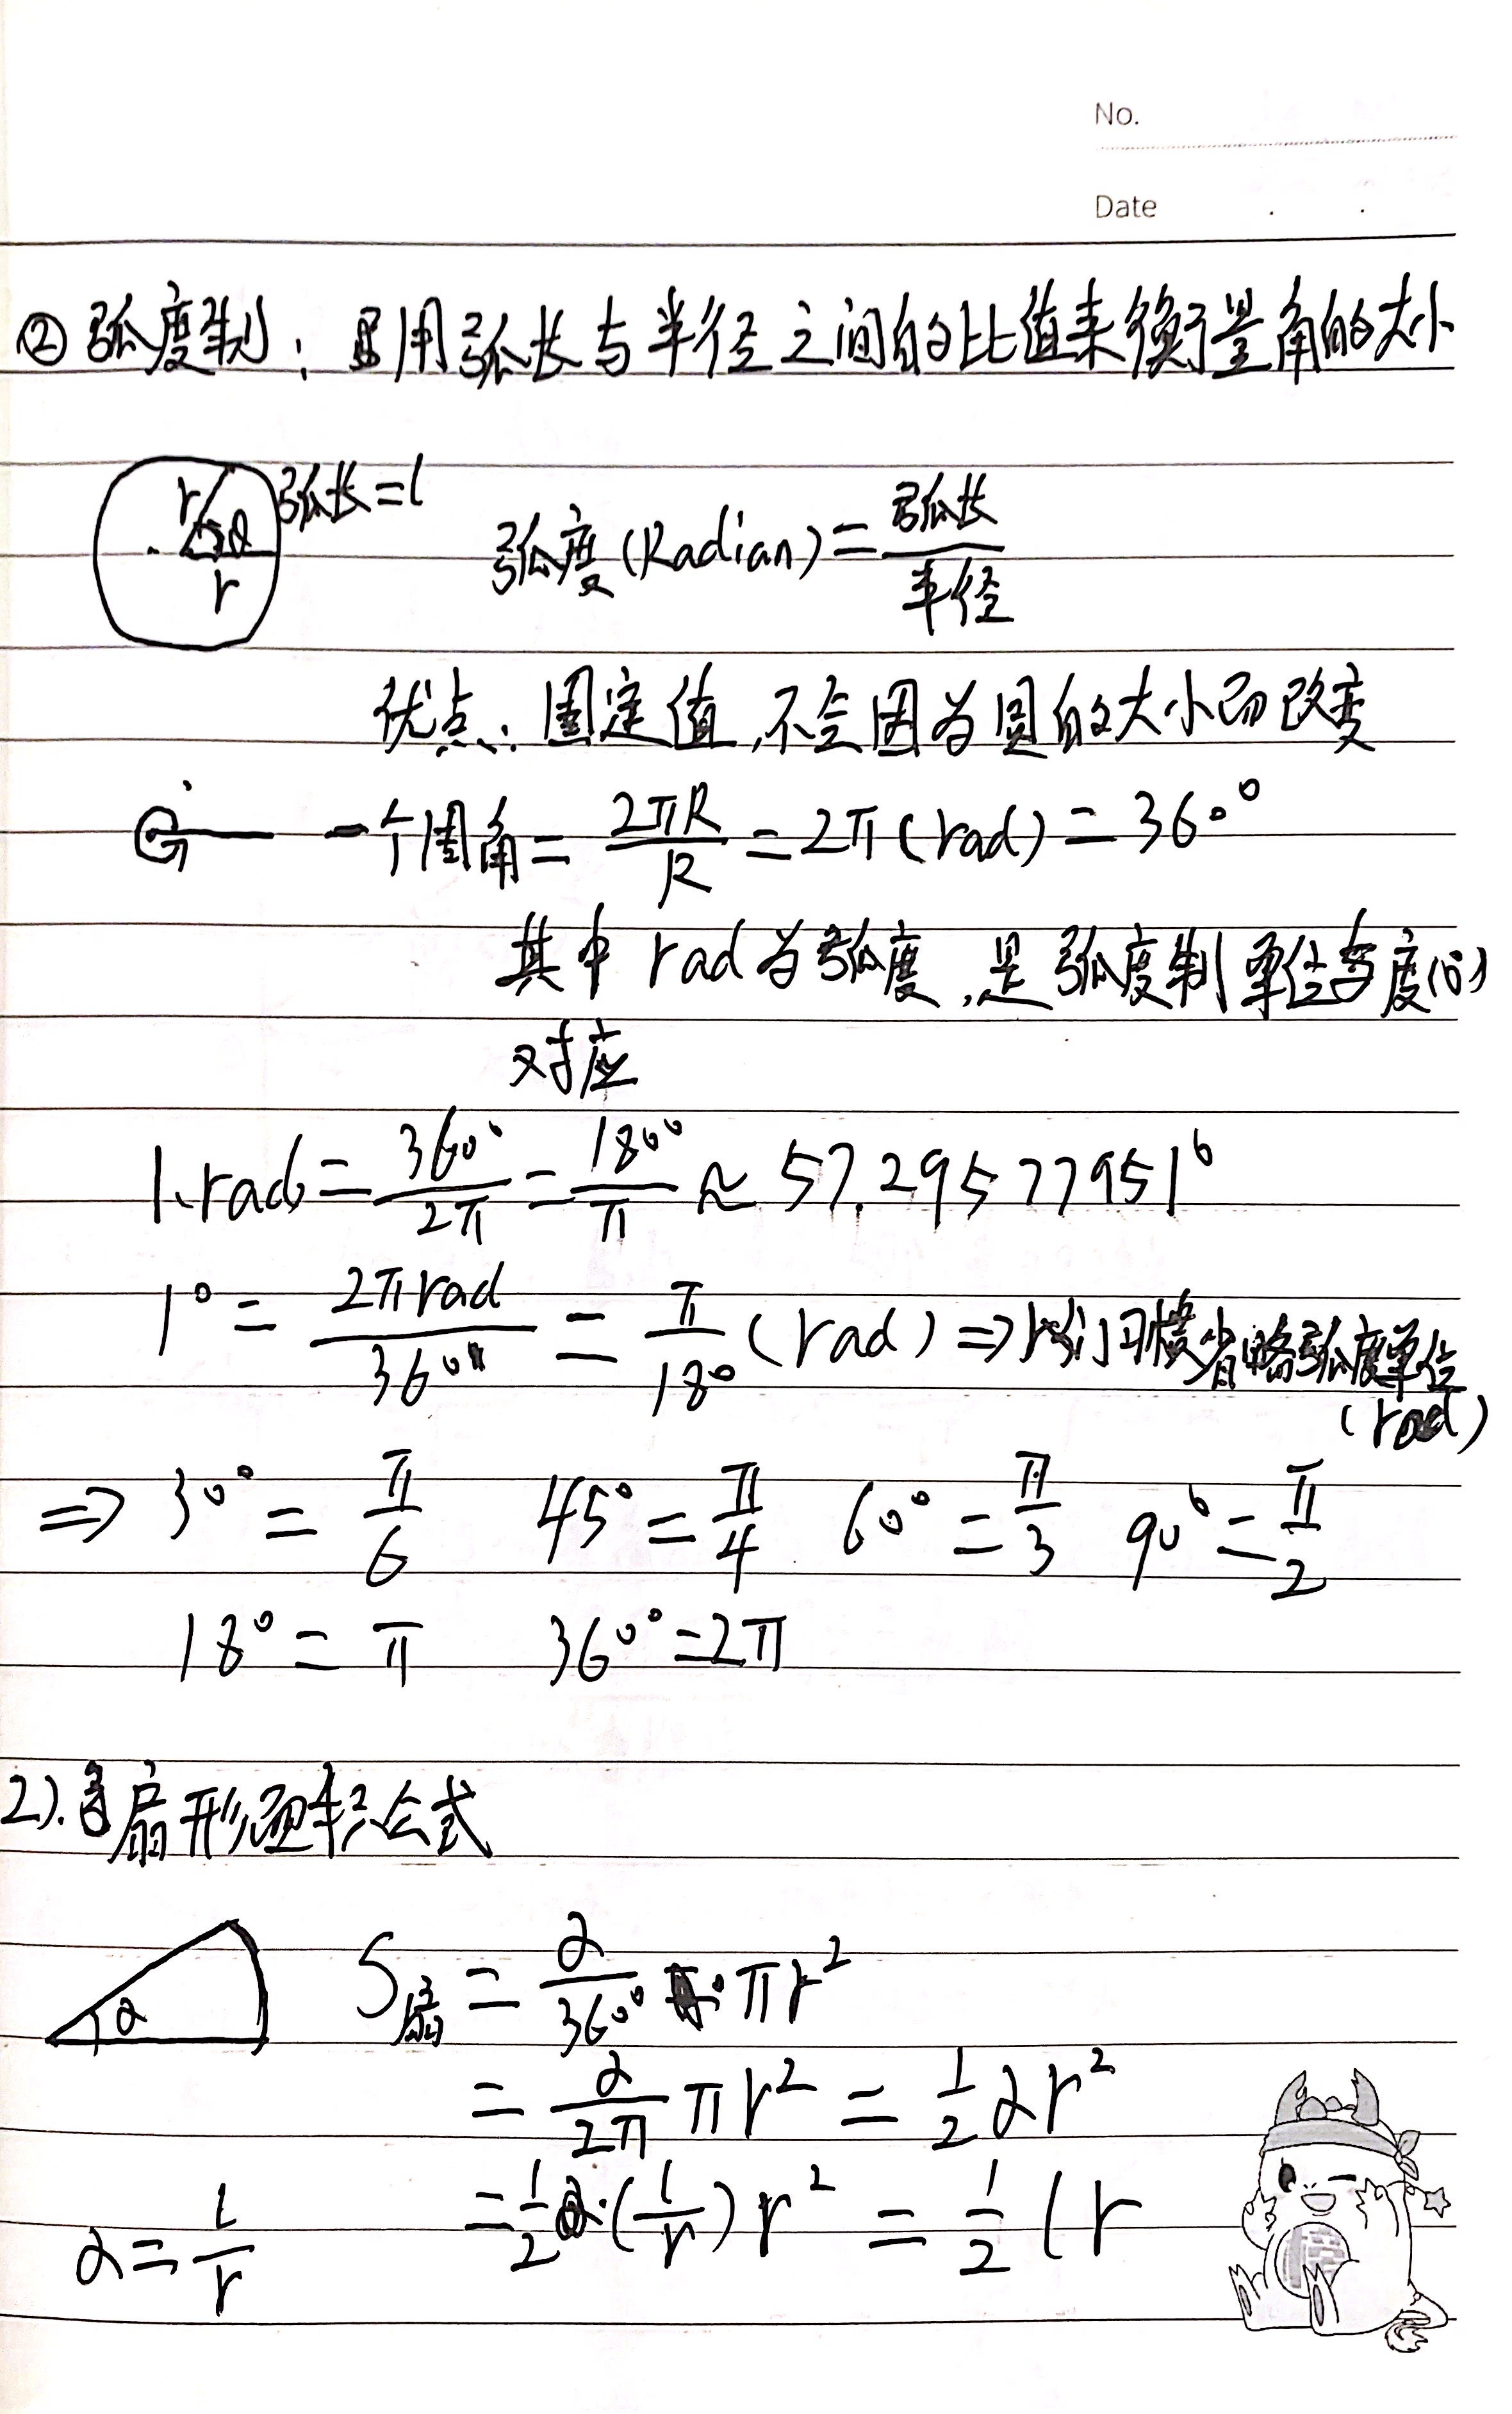 No.
Date . .
② 弧度制：用弧长与半径之间的比值来衡量角的大小
r α r 弧长=l
弧度(Radian)=弧长/半径
优点：固定值,不会因为圆的大小而改变
一个周角=2πR/R=2π(rad)=360°
其中rad为弧度,是弧度制单位与度(°)
对应
1rad=360°/2π=180°/π≈57.29577951°
1°=2πrad/360°=π/180(rad)⇒我们习惯省略弧度单位
(rad)
⇒30°=π/6 45°=π/4 60°=π/3 90°=π/2
180=π 360°=2π
2).扇形面积公式
α S扇=α/360°·πr²
=α/2π πr²=1/2αr²
α=l/r =1/2·(l/r)r²=1/2lr